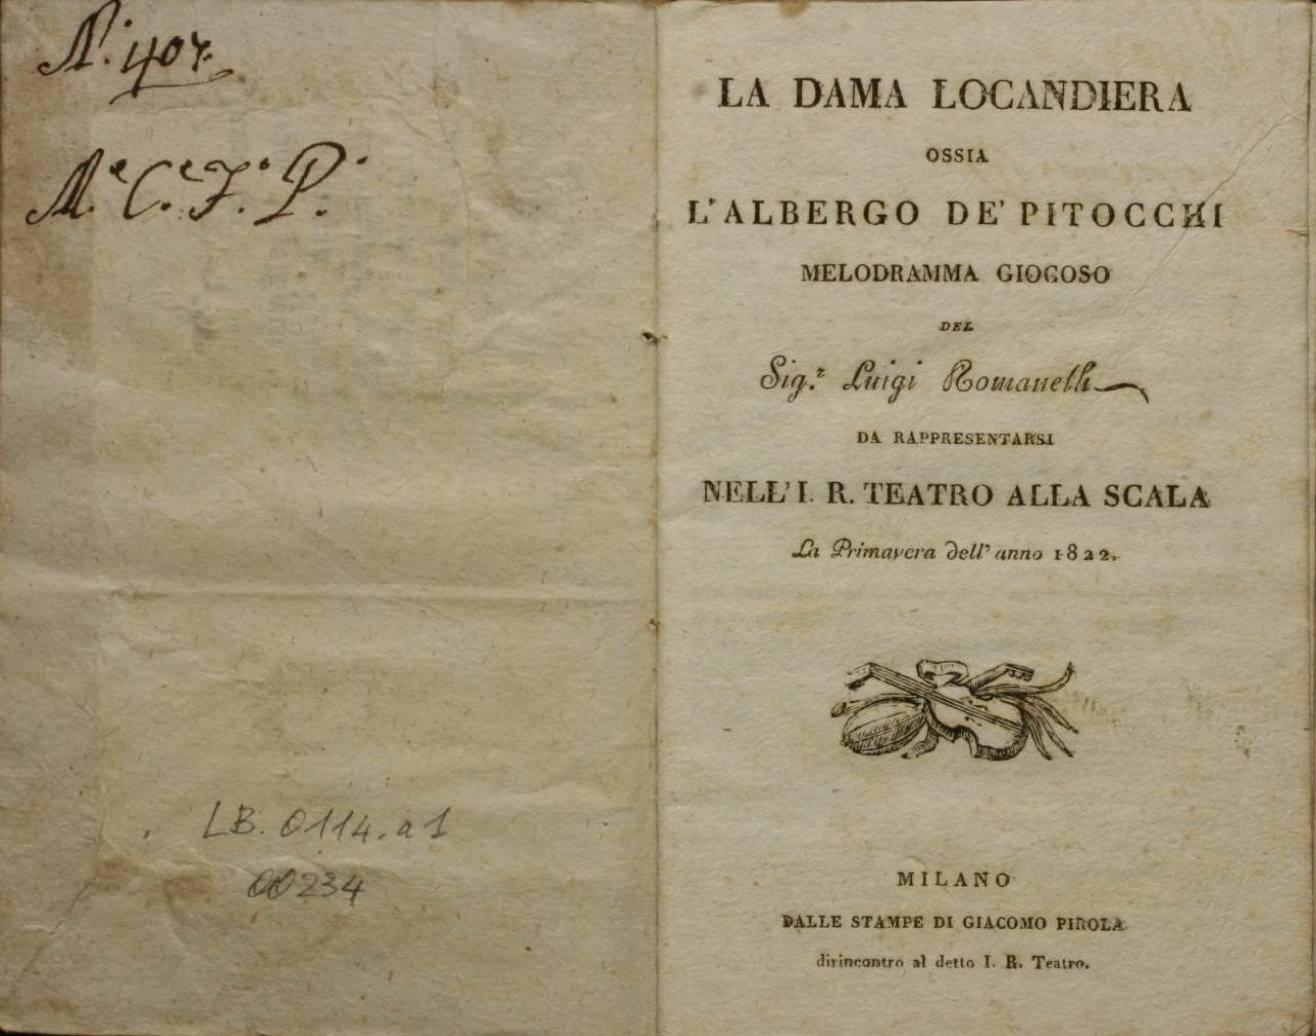 N. 407.
M.e C.e F.o P.
LB. 0114. a 1
00234
LA DAMA LOCANDIERA
OSSIA
L'ALBERGO DE' PITOCCHI
MELODRAMMA GIOCOSO
DEL
Sig.r Luigi Romanelli
DA RAPPRESENTARSI
NELL' I. R. TEATRO ALLA SCALA
La Primavera dell' anno 1822.
MILANO
DALLE STAMPE DI GIACOMO PIROLA
dirincontro al detto I. R. Teatro.